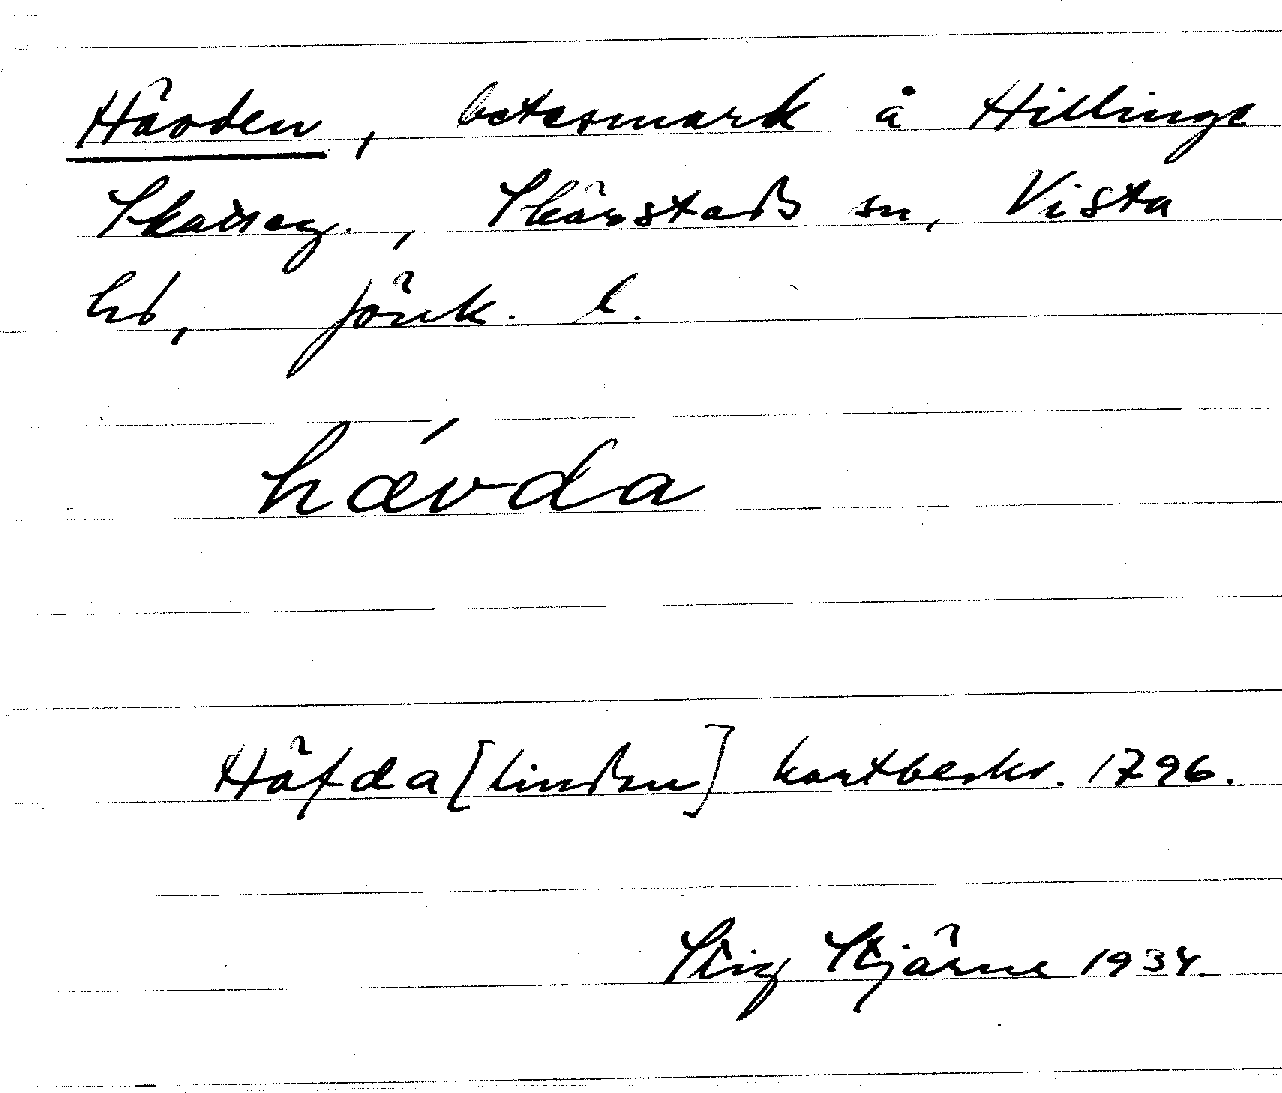 Hävden, betesmark å Hillinge
Skatteg., Skärstads sn, Vista
hd, Jönk. l.
hǽvda
Häfda [linden] kartbeskr. 1796.
Stig Stjärne 1934.